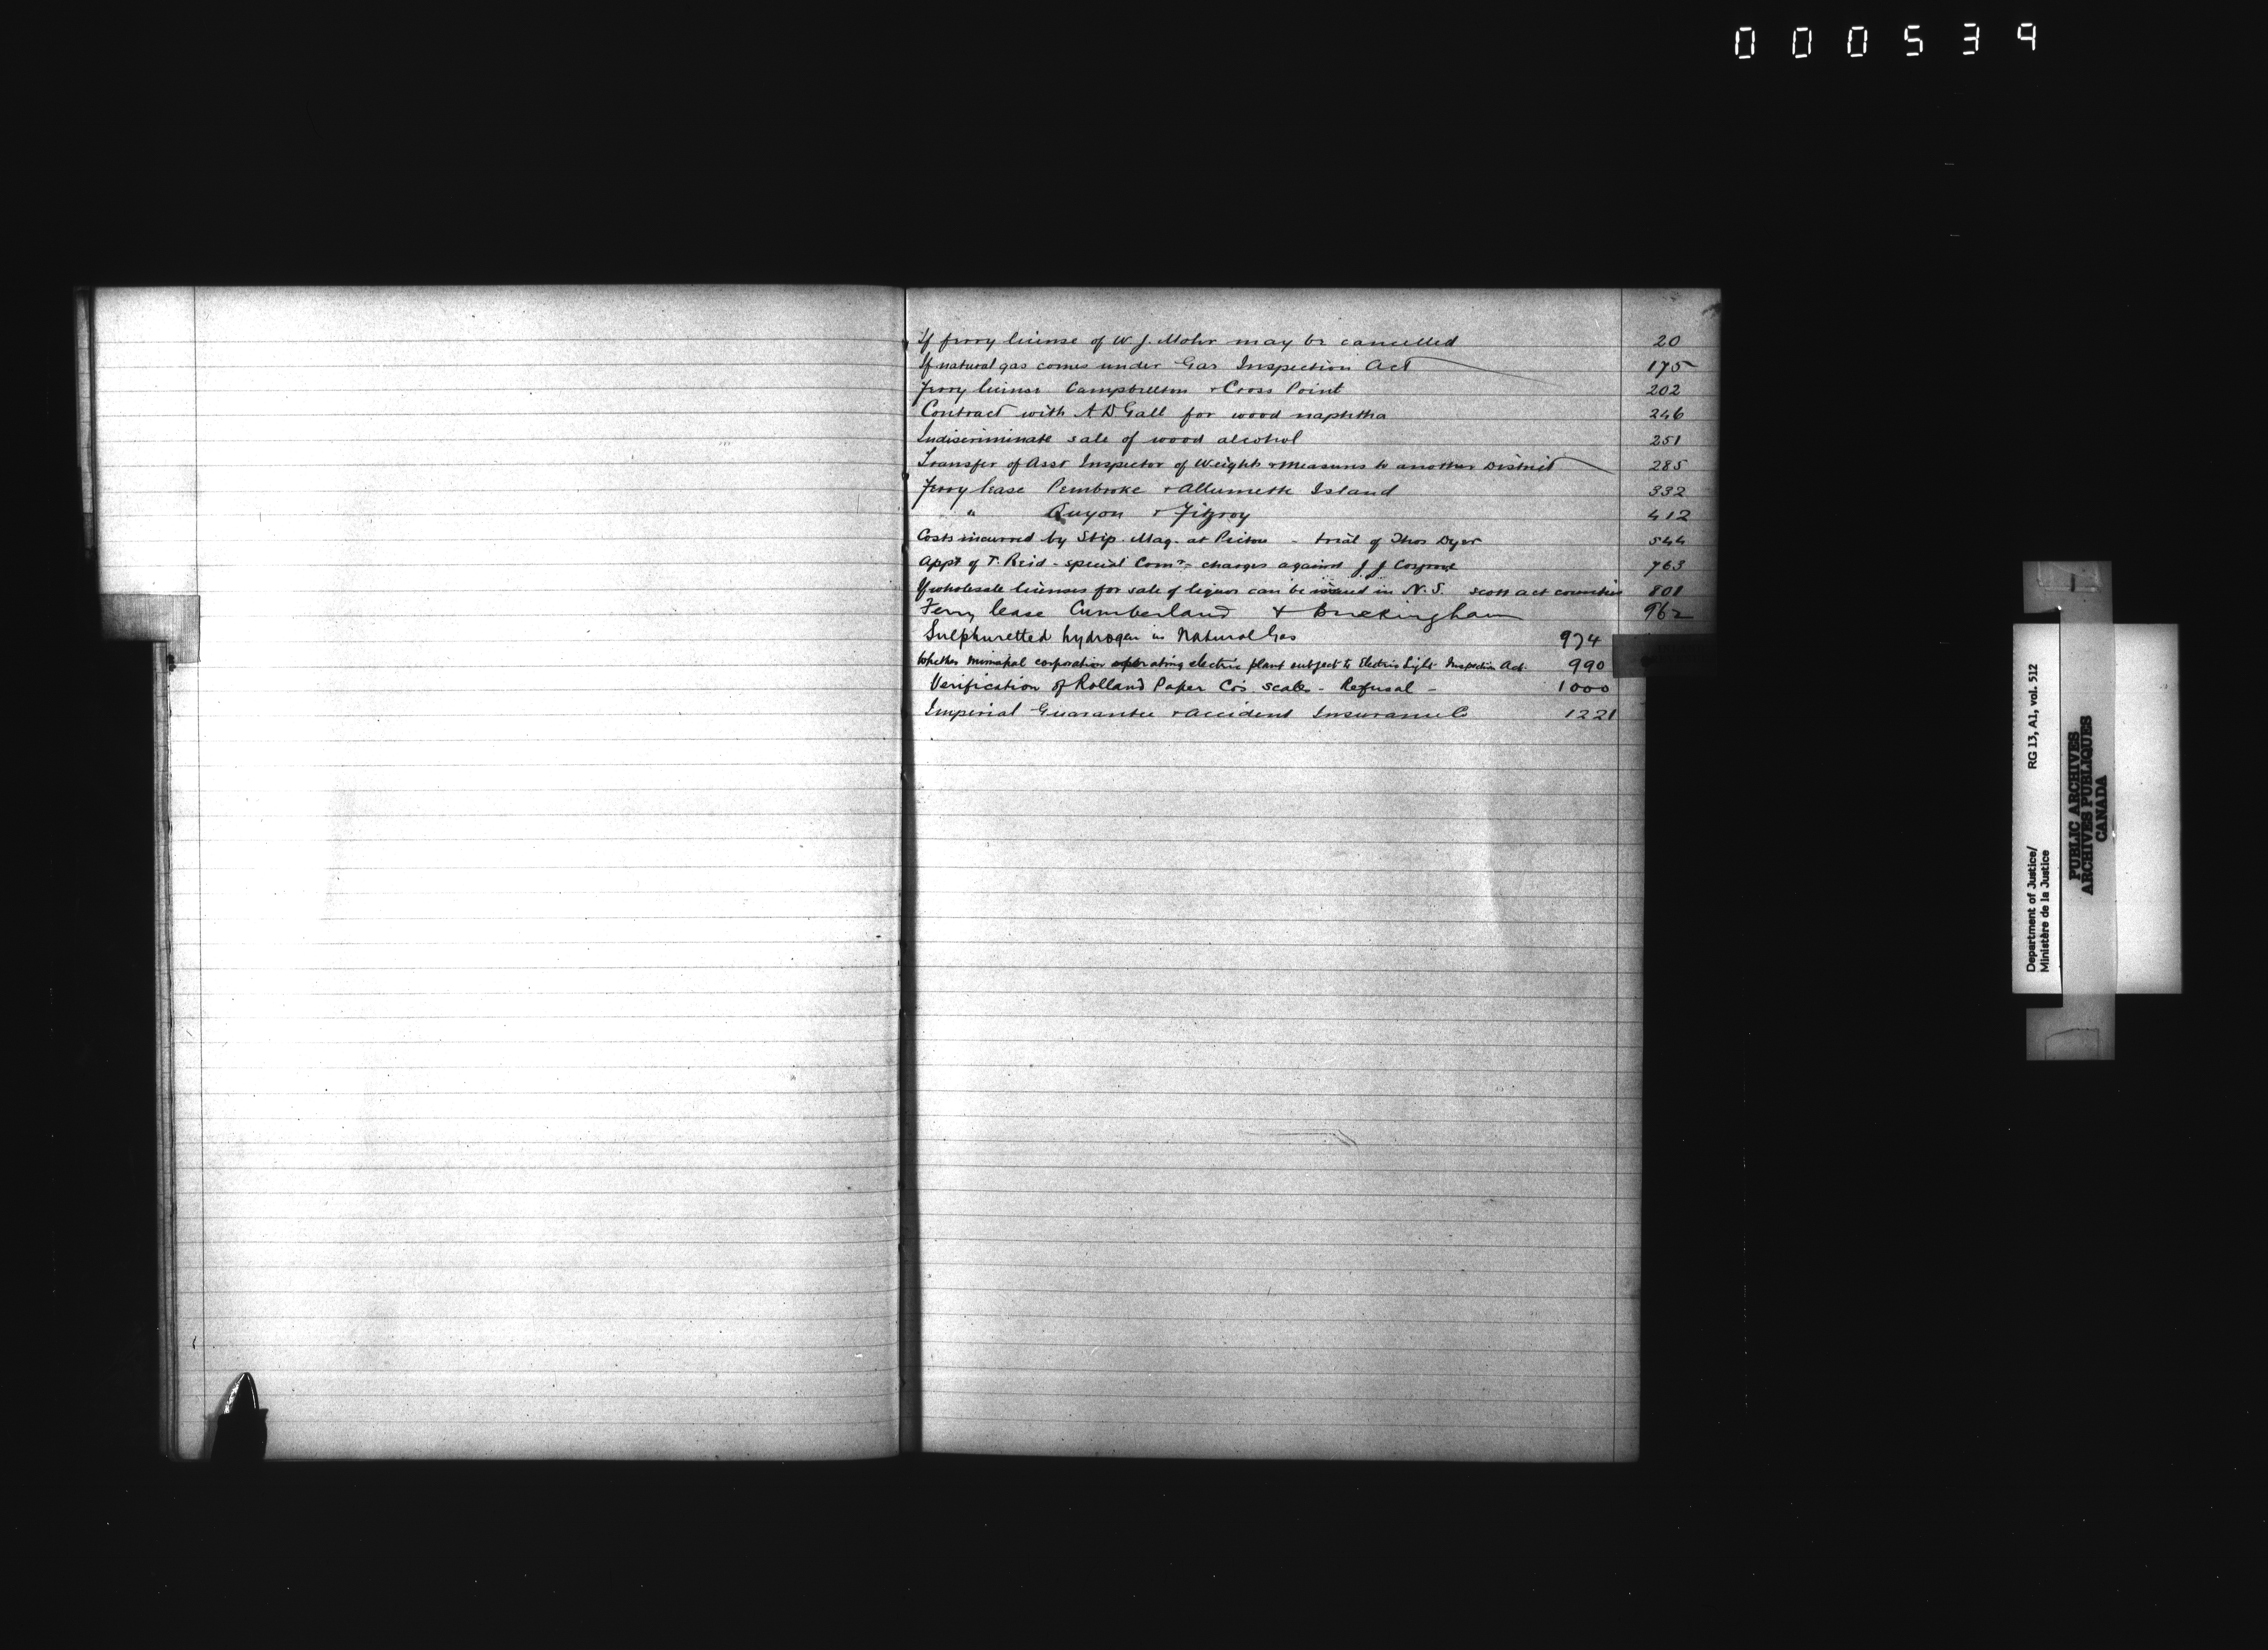 000539
If ferry license of W. J. Mohr may be cancelled 20
If natural gas comes under Gas Inspection Act 175
Ferry license Campbellton & Cross Point 202
Contract with A D Gall for wood naphtha 246
Indiscriminate sale of wood alcohol 251
Transfer of Asst Inspector of Weights & Measures to another District 285
Ferry lease Pembroke & Allumette Island 332
" Quyon & Fitzroy 412
Costs incurred by Stip. Mag. at Pictou - trial of Thos Dyer 544
Appt of T. Reid - special Comr - charges against J J Cosgrove 763
If wholesale licenses for sale of liquor can be issued in N.S. Scott act counties 801
Ferry lease Cumberland & Buckingham 962
Sulphuretted hydrogen in Natural Gas 974
Whether municipal corporation operating electric plant subject to Electric Light Inspection Act. 990
Verification of Rolland Paper Co's scales - Refusal - 1000
Imperial Guarantee & Accident Insurance Co 1221
Department of Justice/ RG 13, A1, vol. 512
Ministère de la Justice
PUBLIC ARCHIVES
ARCHIVES PUBLIQUES
CANADA